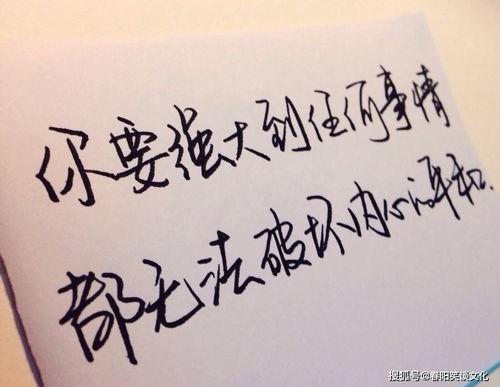 你要强大到任何事情
都无法破坏内心的平和.
搜狐号@春阳笑谈文化